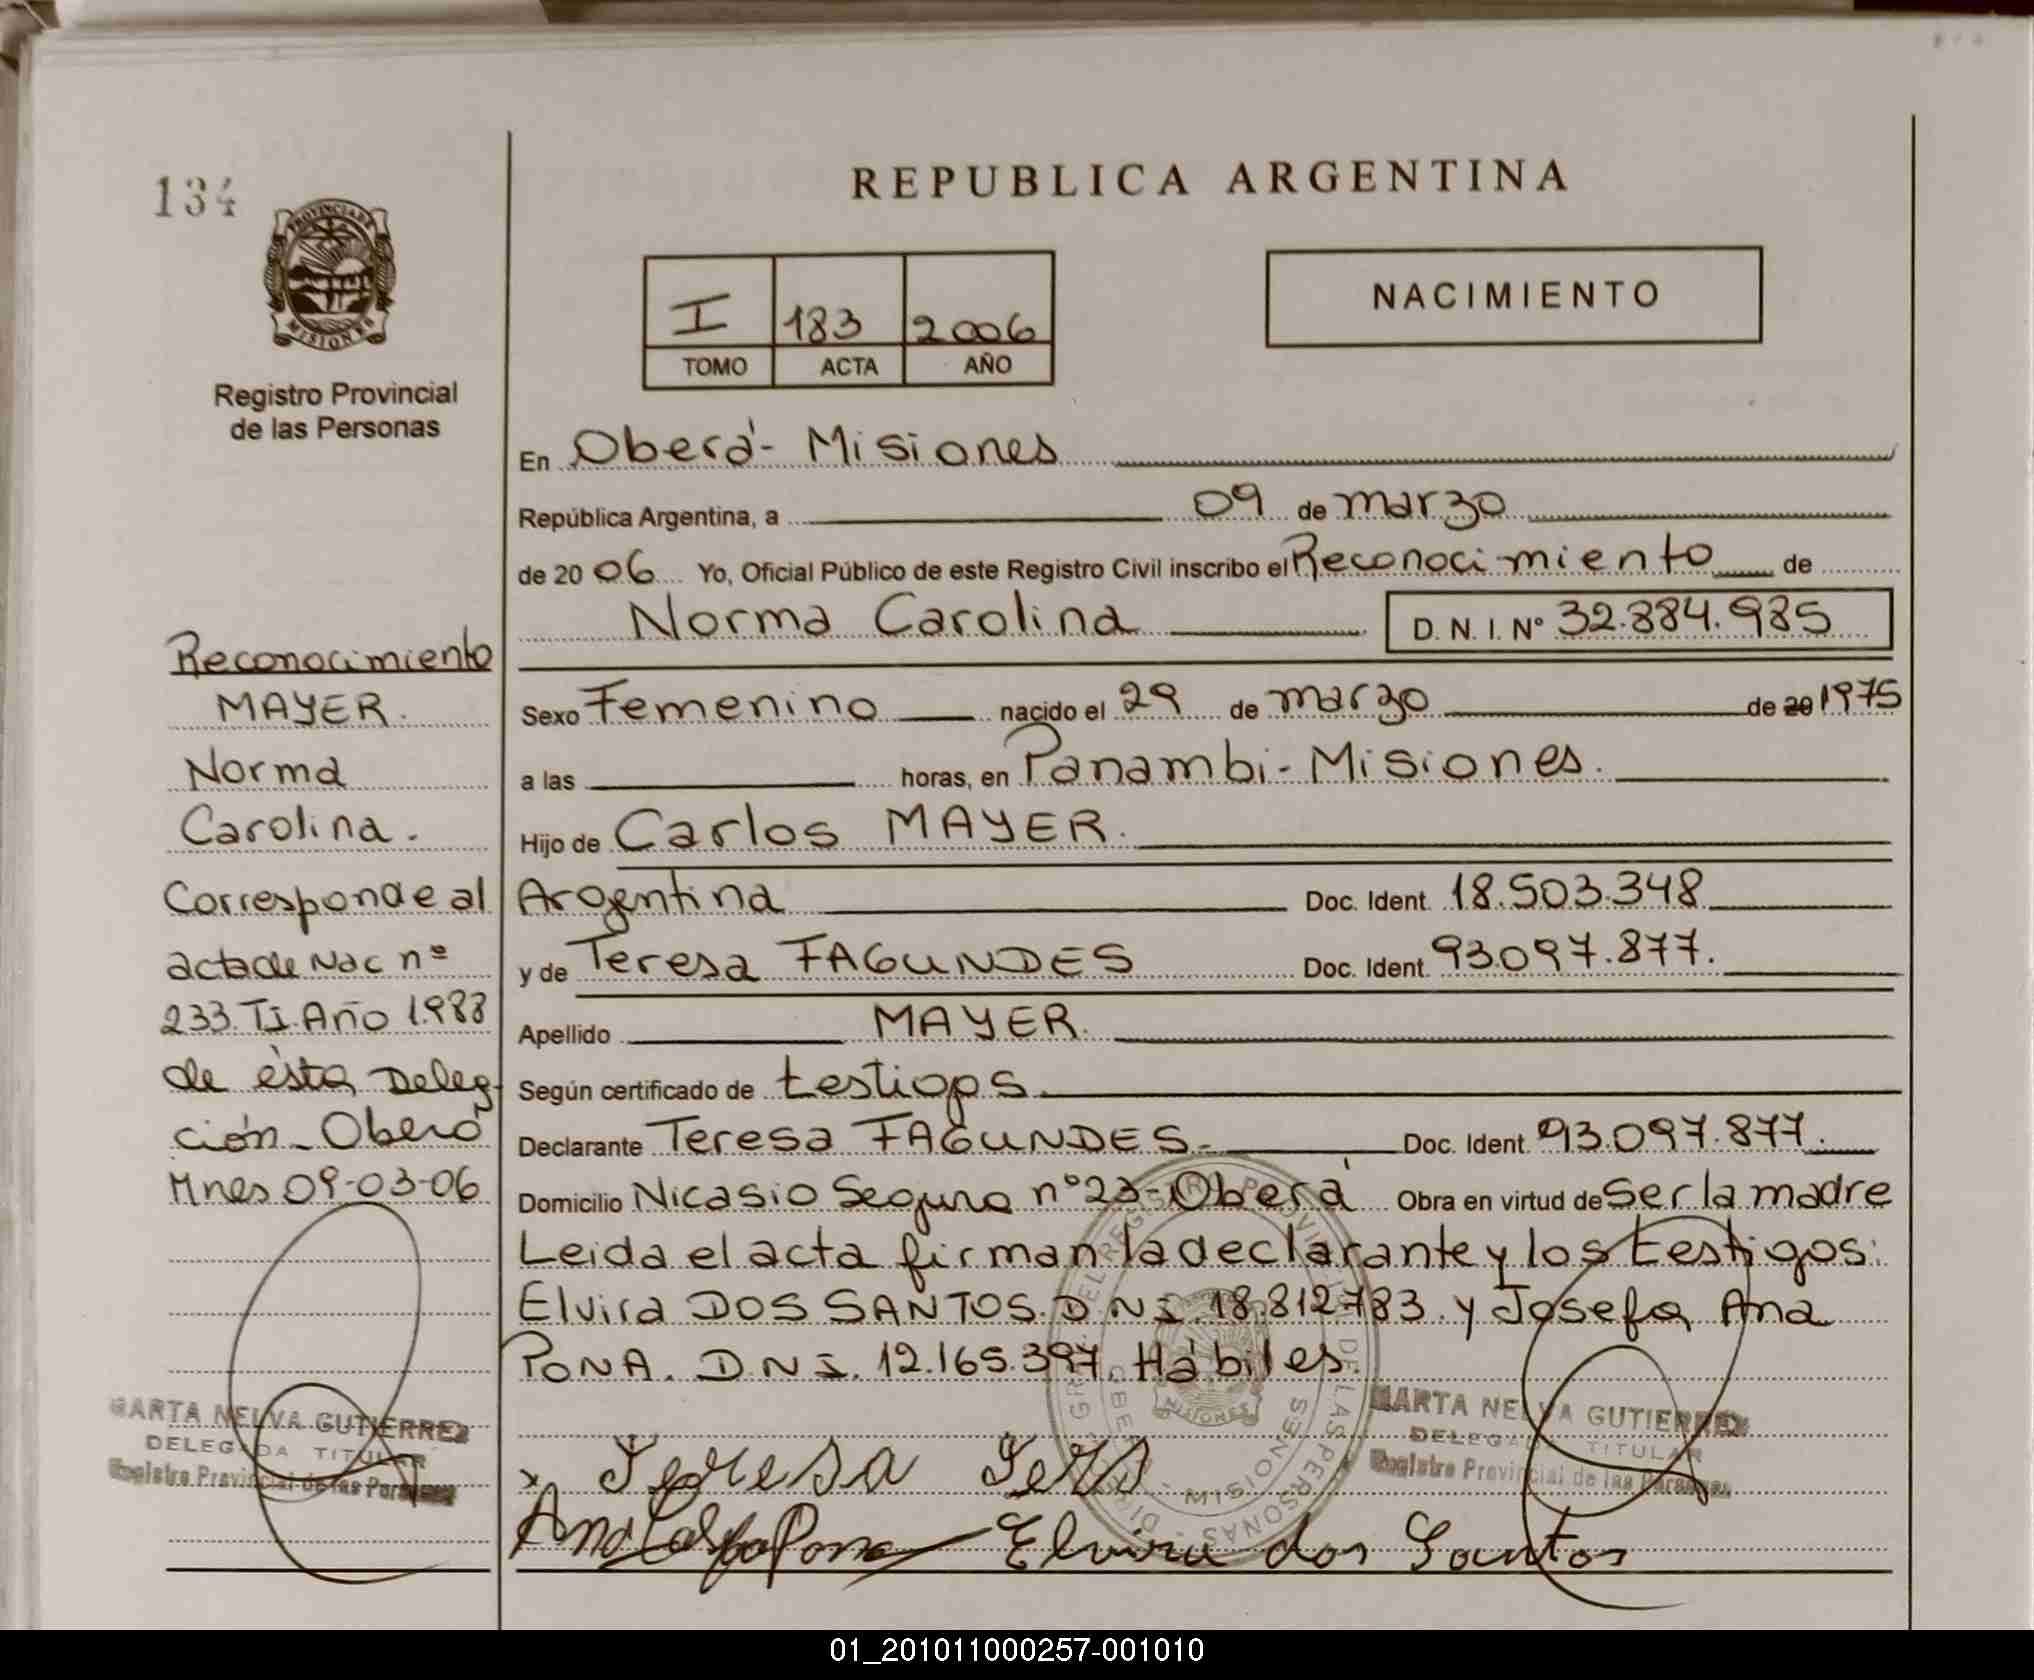 134
PROVINCIA DE
MISIONES
Registro Provincial
de las Personas
REPUBLICA ARGENTINA
I 183 2006
TOMO ACTA AÑO
NACIMIENTO
En Oberá - Misiones
República Argentina, a 09 de marzo
de 20 06 Yo, Oficial Público de este Registro Civil inscribo el Reconocimiento de
Norma Carolina D. N. I. Nº 32.884.985
Sexo Femenino nacido el 29 de marzo de 20 1975
a las horas, en Panambi - Misiones.
Hijo de Carlos MAYER.
Argentina Doc. Ident. 18.503.348
y de Teresa FAGUNDES Doc. Ident. 93.097.877.
Apellido MAYER.
Según certificado de testiogs
Declarante Teresa FAGUNDES - Doc. Ident. 93.097.877.
Domicilio Nicasio Seguro nº 23 - Oberá Obra en virtud de Ser la madre
Leida el acta firman la declarante y los testigos:
Elvira DOS SANTOS. D.N.I. 18.812.783. y Josefa Ana
PONA. D.N.I. 12.165.397. Hábiles.
Reconocimiento
MAYER.
Norma
Carolina.
Corresponde al
acta de Nac nº
233. TI. Año 1.988
de ésta Deleg-
ción - Oberá
Mnes 09-03-06
MARTA NELVA GUTIERREZ
DELEGADA TITULAR
Registro Provincial de las Personas
MARTA NELVA GUTIERREZ
DELEGADA TITULAR
Registro Provincial de las Personas
MISIONES
x Teresa
Elvira dos Santos
01_201011000257-001010